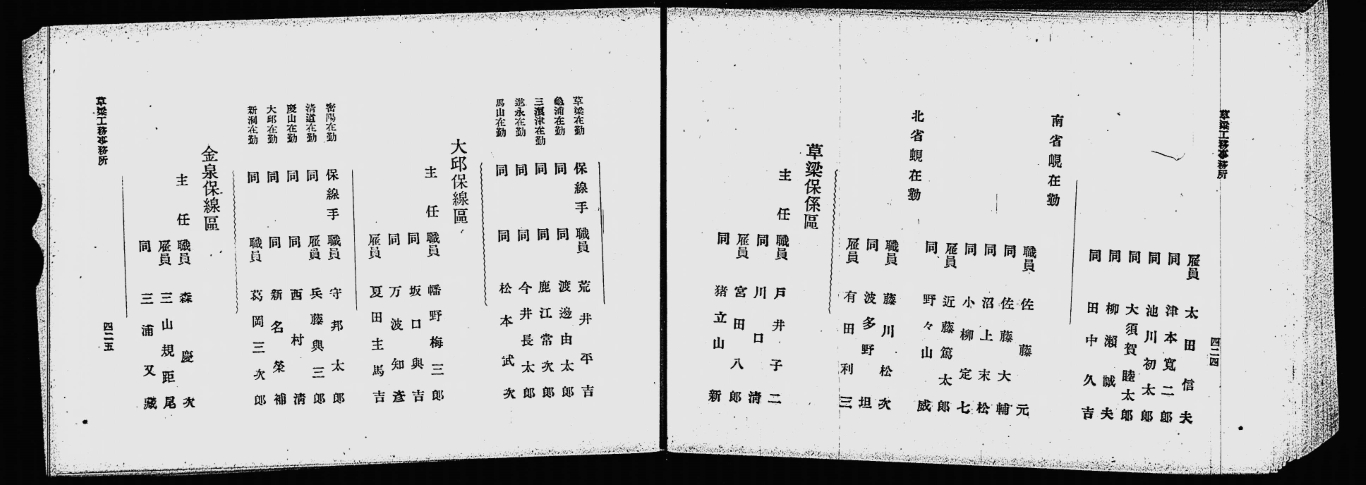 草梁工務事務所
四二四
雇員 太田信夫
同 津本寬二郎
同 池川初太郎
同 大須賀睦太郎
同 柳瀨誠夫
同 田中久吉
南省峴在勤
職員 佐藤元
同 佐藤大輔
同 沼上末松
同 小柳定七
雇員 近藤篤太郎
同 野々山威
北省峴在勤
職員 藤川松次
同 波多野坦
雇員 有田利三
草梁保係區
主任 職員 戸井子二
同 川口清
雇員 宮田八郎
同 猪立山新
草梁在勤 保線手 職員 荒井平吉
龜浦在勤 同 同 渡邊由太郎
三浪津在勤 同 同 鹿江常次郎
進永在勤 同 同 今井長太郎
馬山在勤 同 同 松本武次
大邱保線區
主任 職員 幡野梅三郎
同 坂口與吉
同 万波知彥
雇員 夏田主馬吉
密陽在勤 保線手 職員 守邦太郎
淸道在勤 同 雇員 兵藤與三郎
慶山在勤 同 同 西村淸
大邱在勤 同 同 新名榮補
新洞在勤 同 職員 葛岡三次郎
金泉保線區
主任 職員 森慶次
雇員 三山規距尾
同 三浦又藏
草梁工務事務所
四二五